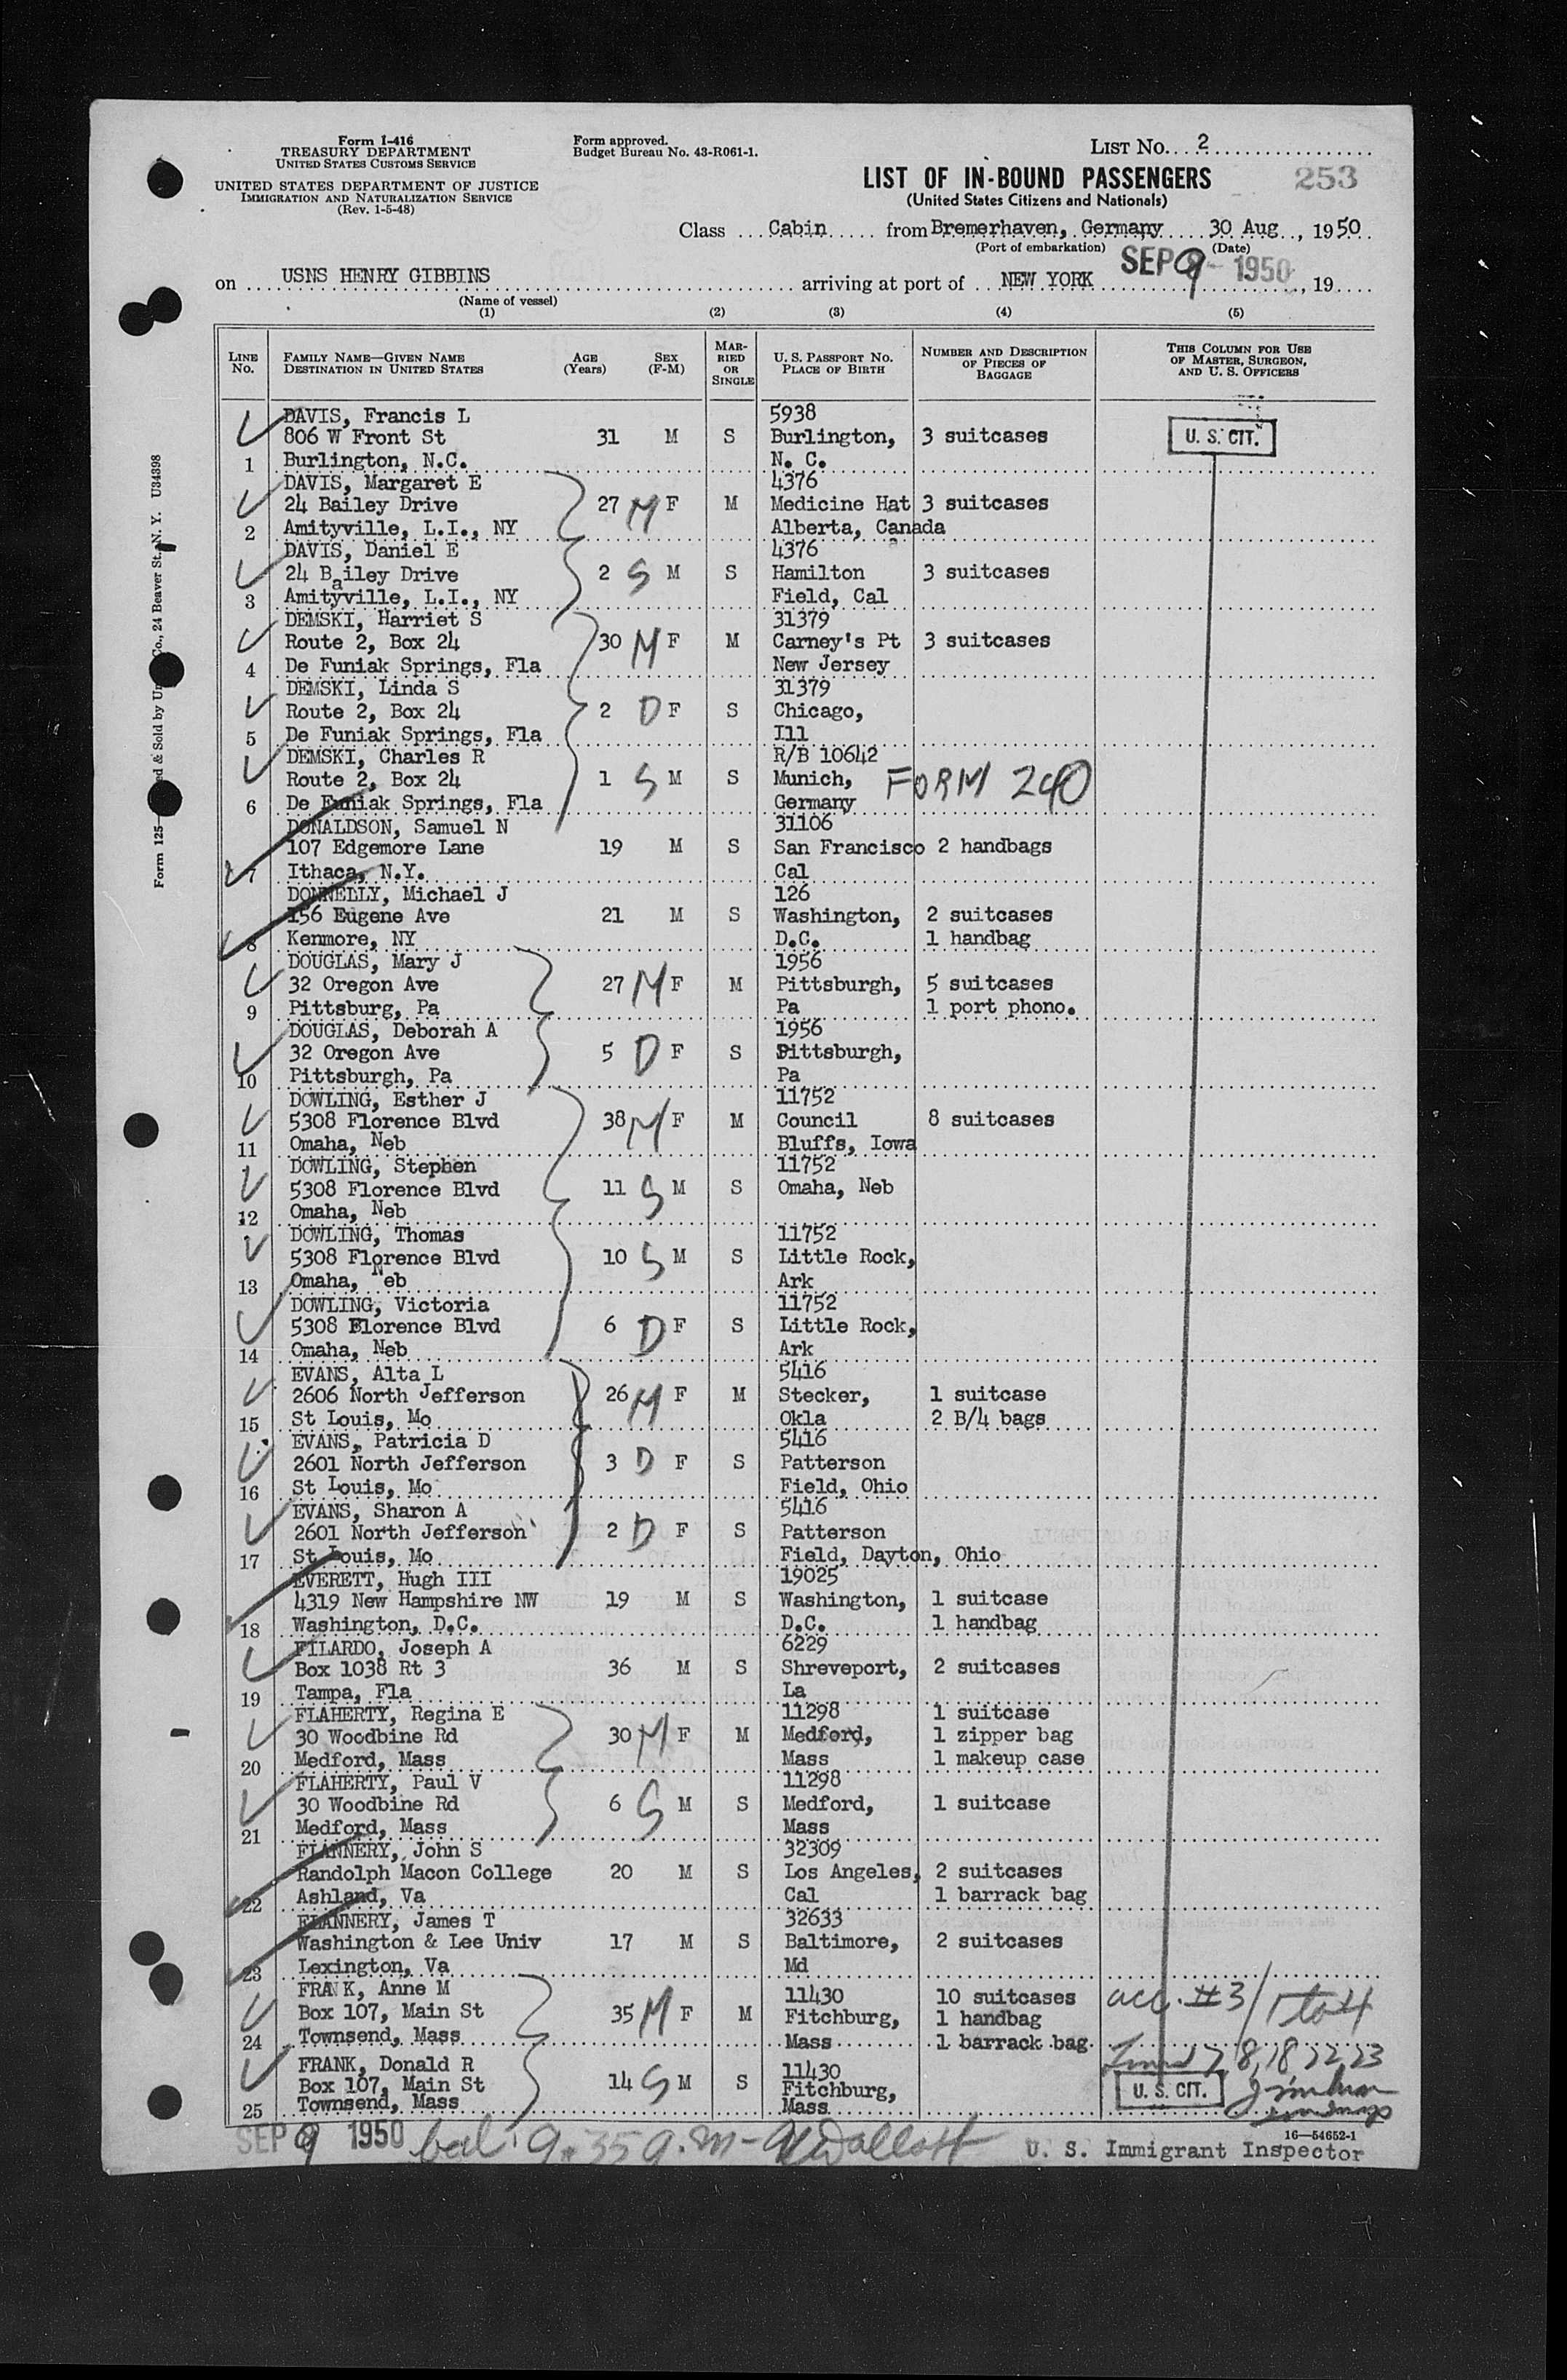 Form I-416
TREASURY DEPARTMENT
UNITED STATES CUSTOMS SERVICE
UNITED STATES DEPARTMENT OF JUSTICE
IMMIGRATION AND NATURALIZATION SERVICE
(Rev. 1-5-48)
Form approved.
Budget Bureau No. 43-R061-1.
LIST No. 2
LIST OF IN-BOUND PASSENGERS
253
(United States Citizens and Nationals)
Class Cabin from Bremerhaven, Germany 30 Aug , 1950
(Port of embarkation) (Date)
SEP 9 - 1950
on USNS HENRY GIBBINS arriving at port of NEW YORK , 19
(Name of vessel)
(1) (2) (3) (4) (5)
LINE No. FAMILY NAME—GIVEN NAME DESTINATION IN UNITED STATES AGE (Years) SEX (F-M) MARRIED OR SINGLE U. S. PASSPORT NO. PLACE OF BIRTH NUMBER AND DESCRIPTION OF PIECES OF BAGGAGE THIS COLUMN FOR USE OF MASTER, SURGEON, AND U. S. OFFICERS
DAVIS, Francis L 5938
806 W Front St 31 M S Burlington, 3 suitcases U. S. CIT.
1 Burlington, N.C. N. C.
DAVIS, Margaret E 4376
24 Bailey Drive 27 M F M Medicine Hat 3 suitcases
2 Amityville, L.I., NY Alberta, Canada
DAVIS, Daniel E 4376
24 Bailey Drive 2 S M S Hamilton 3 suitcases
3 Amityville, L.I., NY Field, Cal
DEMSKI, Harriet S 31379
Route 2, Box 24 30 M F M Carney's Pt 3 suitcases
4 De Funiak Springs, Fla New Jersey
DEMSKI, Linda S 31379
Route 2, Box 24 2 D F S Chicago,
5 De Funiak Springs, Fla Ill
DEMSKI, Charles R R/B 10642
Route 2, Box 24 1 S M S Munich, FORM 240
6 De Funiak Springs, Fla Germany
DONALDSON, Samuel N 31106
107 Edgemore Lane 19 M S San Francisco 2 handbags
7 Ithaca, N.Y. Cal
DONNELLY, Michael J 126
156 Eugene Ave 21 M S Washington, 2 suitcases
8 Kenmore, NY D.C. 1 handbag
DOUGLAS, Mary J 1956
32 Oregon Ave 27 M F M Pittsburgh, 5 suitcases
9 Pittsburg, Pa Pa 1 port phono.
DOUGLAS, Deborah A 1956
32 Oregon Ave 5 D F S Pittsburgh,
10 Pittsburgh, Pa Pa
DOWLING, Esther J 11752
5308 Florence Blvd 38 M F M Council 8 suitcases
11 Omaha, Neb Bluffs, Iowa
DOWLING, Stephen 11752
5308 Florence Blvd 11 S M S Omaha, Neb
12 Omaha, Neb
DOWLING, Thomas 11752
5308 Florence Blvd 10 S M S Little Rock,
13 Omaha, Neb Ark
DOWLING, Victoria 11752
5308 Florence Blvd 6 D F S Little Rock,
14 Omaha, Neb Ark
EVANS, Alta L 5416
2606 North Jefferson 26 M F M Stecker, 1 suitcase
15 St Louis, Mo Okla 2 B/4 bags
EVANS, Patricia D 5416
2601 North Jefferson 3 D F S Patterson
16 St Louis, Mo Field, Ohio
EVANS, Sharon A 5416
2601 North Jefferson 2 D F S Patterson
17 St Louis, Mo Field, Dayton, Ohio
EVERETT, Hugh III 19025
4319 New Hampshire NW 19 M S Washington, 1 suitcase
18 Washington, D.C. D.C. 1 handbag
FILARDO, Joseph A 6229
Box 1038 Rt 3 36 M S Shreveport, 2 suitcases
19 Tampa, Fla La
FLAHERTY, Regina E 11298 1 suitcase
30 Woodbine Rd 30 M F M Medford, 1 zipper bag
20 Medford, Mass Mass 1 makeup case
FLAHERTY, Paul V 11298
30 Woodbine Rd 6 S M S Medford, 1 suitcase
21 Medford, Mass Mass
FLANNERY, John S 32309
Randolph Macon College 20 M S Los Angeles, 2 suitcases
22 Ashland, Va Cal 1 barrack bag
FLANNERY, James T 32633
Washington & Lee Univ 17 M S Baltimore, 2 suitcases
23 Lexington, Va Md
FRANK, Anne M 11430 10 suitcases acc. #3/1 to 4
Box 107, Main St 35 M F M Fitchburg, 1 handbag
24 Townsend, Mass Mass 1 barrack bag
7, 8, 18, 22, 23
FRANK, Donald R 11430
Box 107, Main St 14 S M S Fitchburg, U. S. CIT.
25 Townsend, Mass Mass
SEP 9 1950 bal: 9:35 a.m -
16—54652-1
U. S. Immigrant Inspector
Form 125
Co., 24 Beaver St., N. Y. U34398